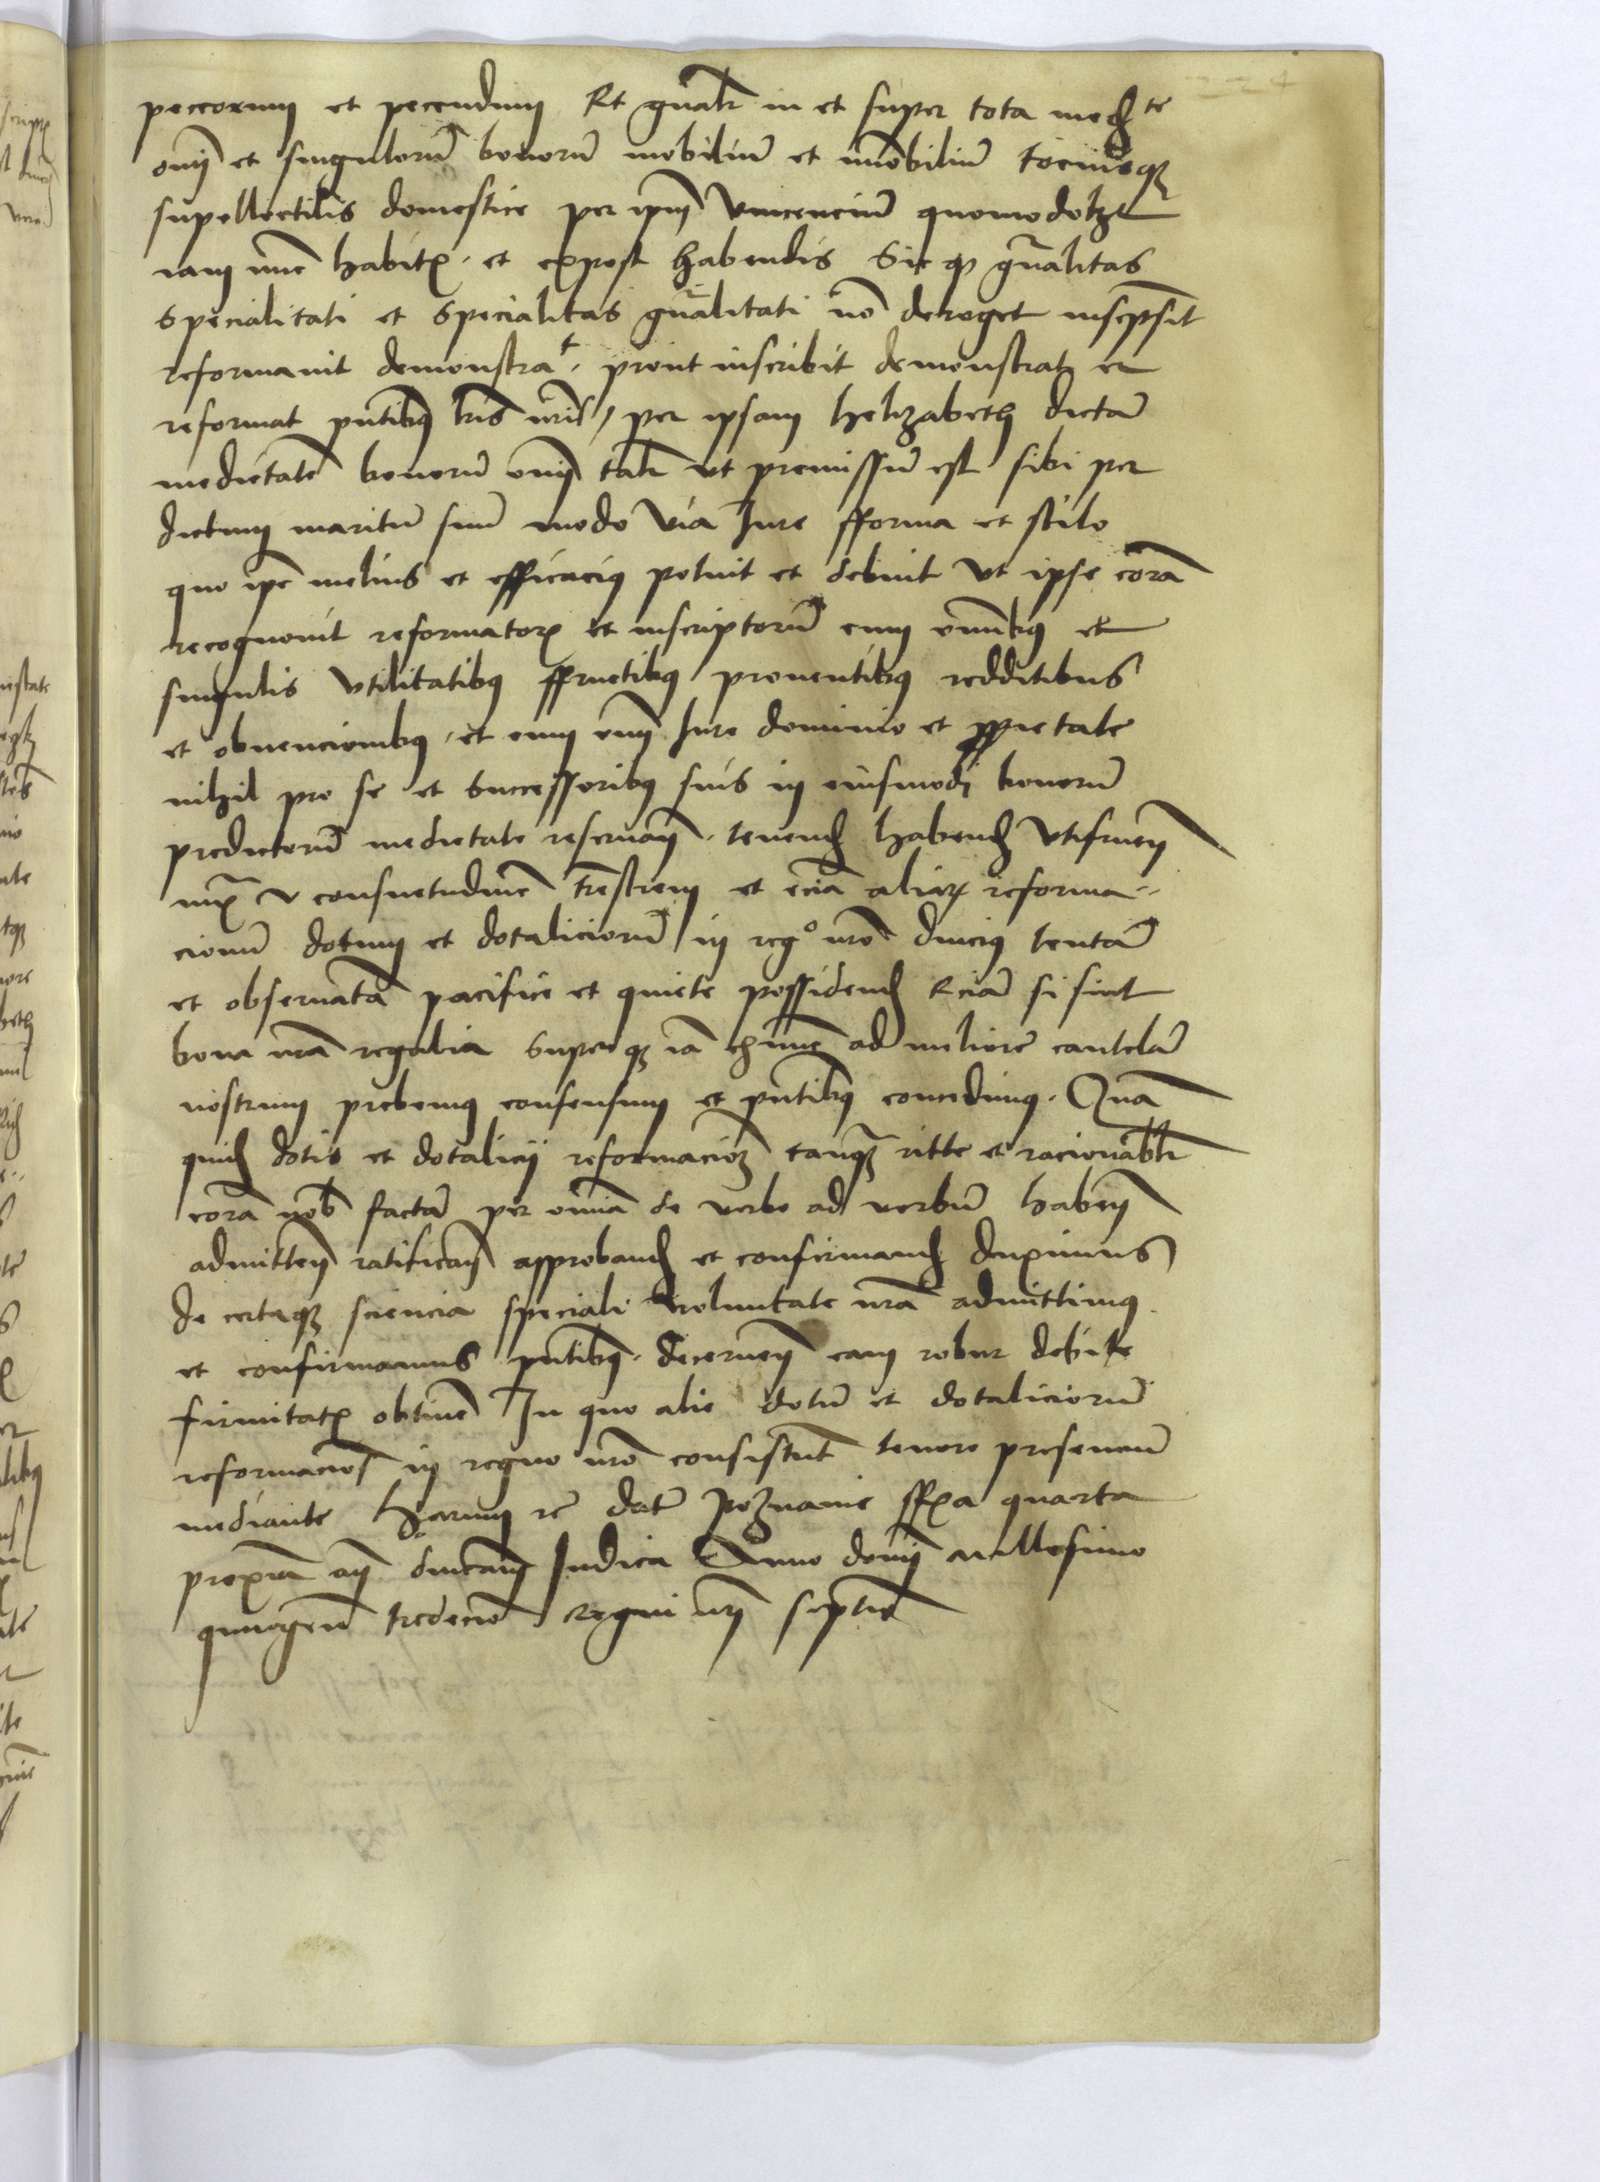 peccorum et pecudum Et gnali in et super tota medte
oim et singulorum bonorum mobilium et immobilium tociusq
supellectilis domestice per ipm Vincencium quomodolz
iam nunc habitis et expost habendis Sic q gnalitas
specialitati et specialitas gnalitati no deroget inscripsit
reformavit demonstrat prout inscribit demonstrat et
reformat pntibus lris nris / per ipsam helizabeth dictam
medietatem bonorum oim tali ut premissum est sibi per
dictum maritum suum modo via Jure fforma et stilo
quo ipe melius et efficacius potuit et debuit ut ipse coram
recognovit reformatorum et inscriptorum cum omnibus et
singulis utilitatibus ffructibus proventibus redditibus
et obvencionibus et cum omni Jure dominio et pprietate
nihil pro se et successoribus suis in eiusmodi bonorum
predictorum medietate reservan tenend habend utifruen
iuxta consuetudinem trestrem et eciam aliarum reforma-
cionum dotum et dotaliciorum in rego nro diucius tentam
et observatam pacifice et quiete possidend Eciam si sint
bona nra regalia superq ad meliorem cautelam
nostrum prebemus consensum et pntibus concedimus. Quam
quid dotis et dotalicij reformacionem tanq ritte et racionabili
coram nob factam per omnia de verbo ad verbum haben
admitten ratifican approband et confirmand duximus
de certaq sciencia speciali voluntate nra admittimus
et confirmamus pntibus. decernen eam robur debite
firmitatis obtinere In quo alie dotum et dotaliciorum
reformaciones in regno nro consistunt tenore presencium
mediante harum re datum Poznanie ffia quarta
proxima an dnicam Judica Anno domi millesimo
quingen tredecio Regni nri septio